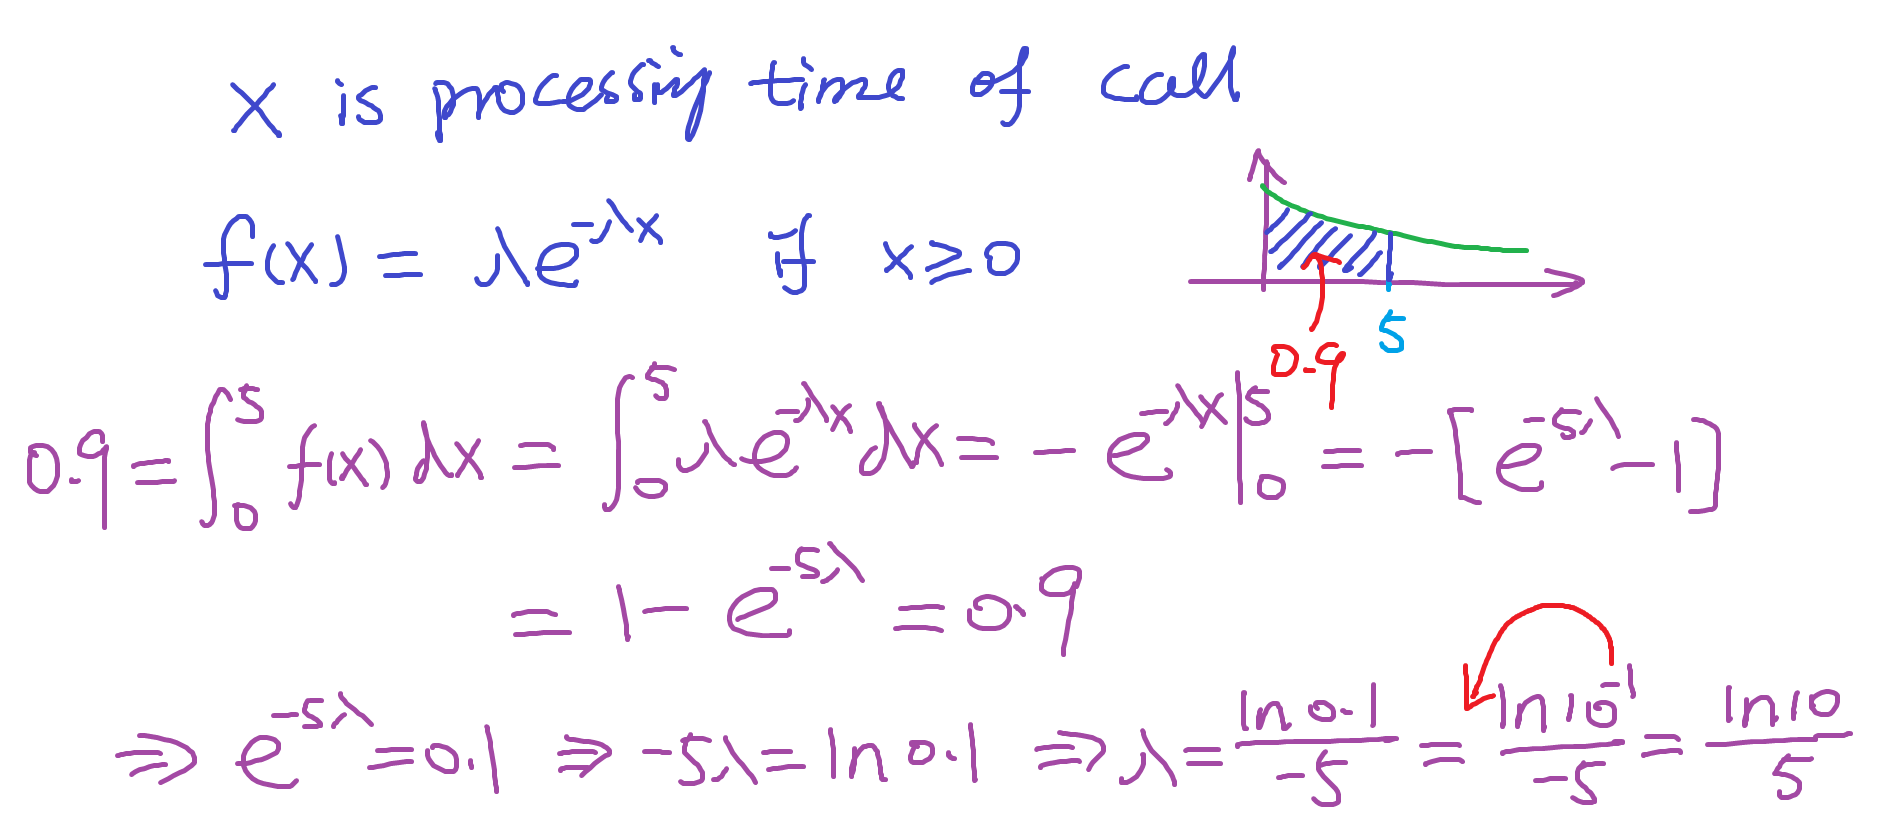 X is processing time of call
f(x) = λe^{-λx} if x ≥ 0
5
0.9
0.9 = ∫_0^5 f(x) dx = ∫_0^5 λe^{-λx} dx = -e^{-λx} |_0^5 = -[e^{-5λ} - 1]
= 1 - e^{-5λ} = 0.9
⇒ e^{-5λ} = 0.1 ⇒ -5λ = ln 0.1 ⇒ λ = \frac{ln 0.1}{-5} = \frac{ln 10^{-1}}{-5} = \frac{ln 10}{5}